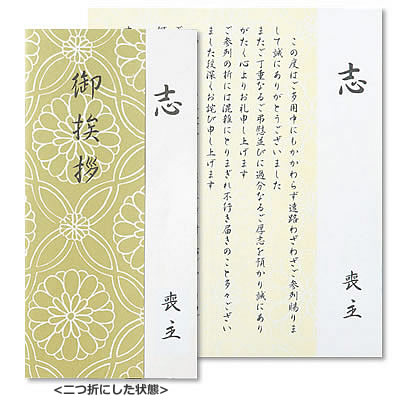 御挨拶
志
喪主
志
この度はご多用中にもかかわらず遠路わざわざご参列賜りま
して誠にありがとうございました
またご丁重なるご弔慰並びに過分なるご厚志を預かり誠にあり
がたく心よりお礼申し上げます
ご参列の折には混雑にとりまぎれ不行き届きのこと多々ござい
ました段深くお詫び申し上げます
喪主
<二つ折にした状態>